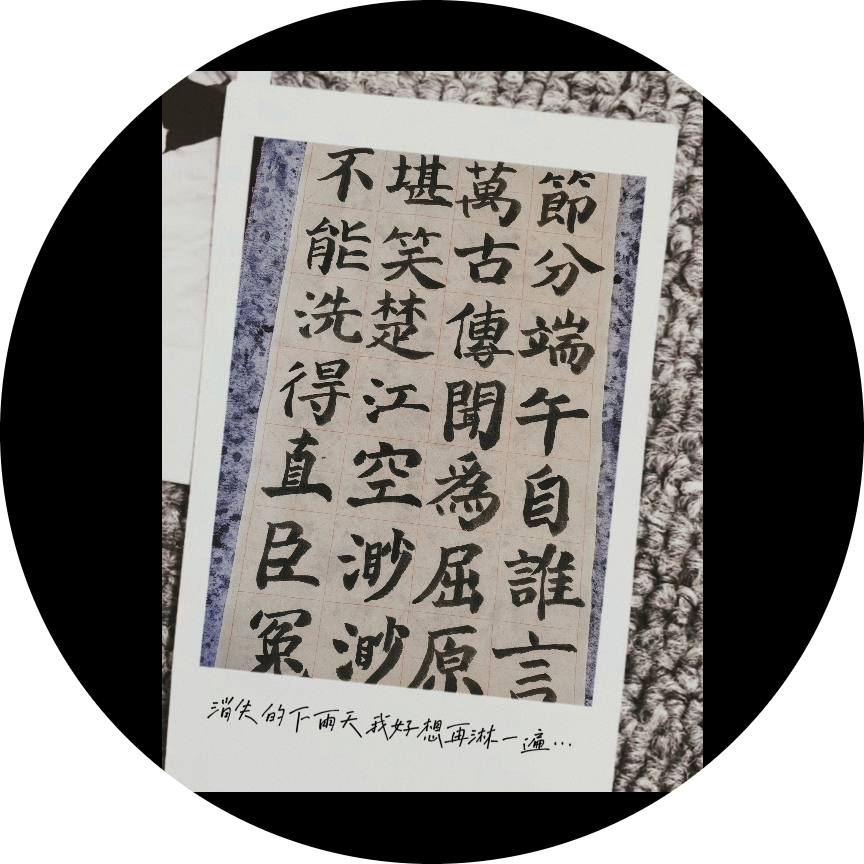 節分端午自誰言
萬古傳聞爲屈原
堪笑楚江空渺渺
不能洗得直臣冤
消失的下雨天我好想再淋一遍…